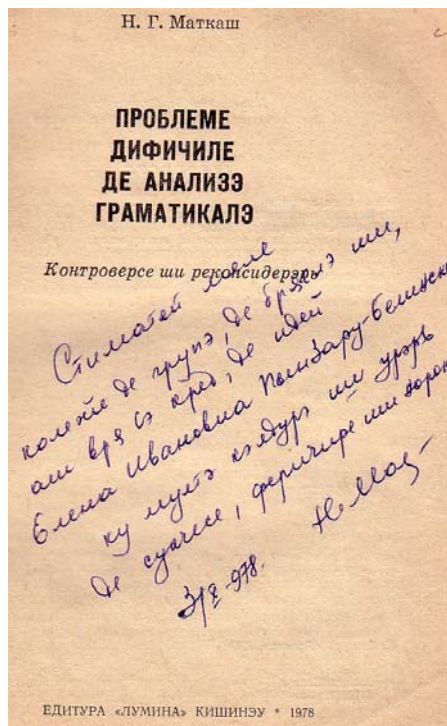 Н. Г. Маткаш
ПРОБЛЕМЕ
ДИФИЧИЛЕ
ДЕ АНАЛИЗЭ
ГРАМАТИКАЛЭ
Контроверсе ши реконсидерэрь
Стиматей меле
колеӂе де групэ, де бряслэ ши,
аш вря сэ кред, де идей
Елена Ивановна Пынзару-
ку мултэ кэлдурэ ши урэрь
де сукчесе, феричире ши норок
3/X-978.
ЕДИТУРА «ЛУМИНА» КИШИНЭУ * 1978